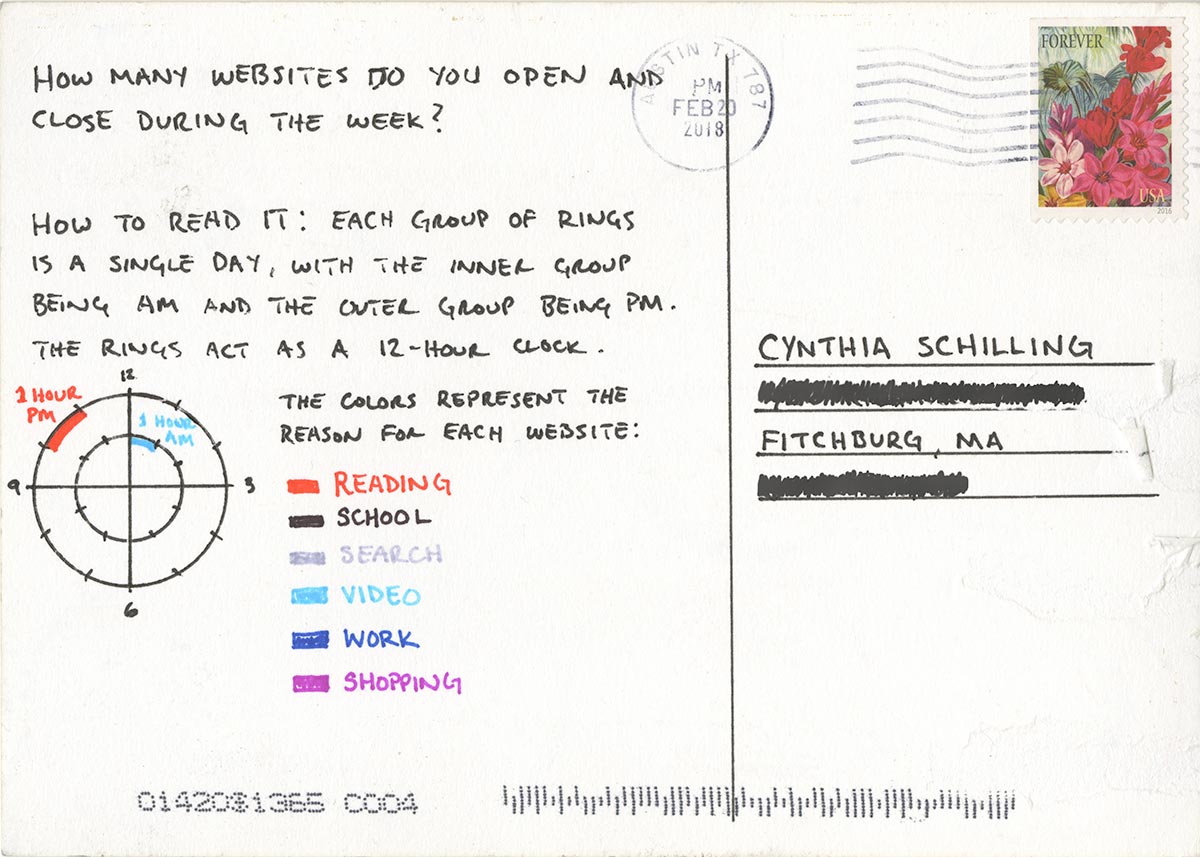 HOW MANY WEBSITES DO YOU OPEN AND
CLOSE DURING THE WEEK?
HOW TO READ IT: EACH GROUP OF RINGS
IS A SINGLE DAY, WITH THE INNER GROUP
BEING AM AND THE OUTER GROUP BEING PM.
THE RINGS ACT AS A 12-HOUR CLOCK.
12
1 HOUR
PM
1 HOUR
AM
9
3
6
THE COLORS REPRESENT THE
REASON FOR EACH WEBSITE:
READING
SCHOOL
SEARCH
VIDEO
WORK
SHOPPING
AUSTIN TX 787
PM
FEB 20
2018
FOREVER
USA
2016
CYNTHIA SCHILLING
FITCHBURG, MA
01420$1365 C004